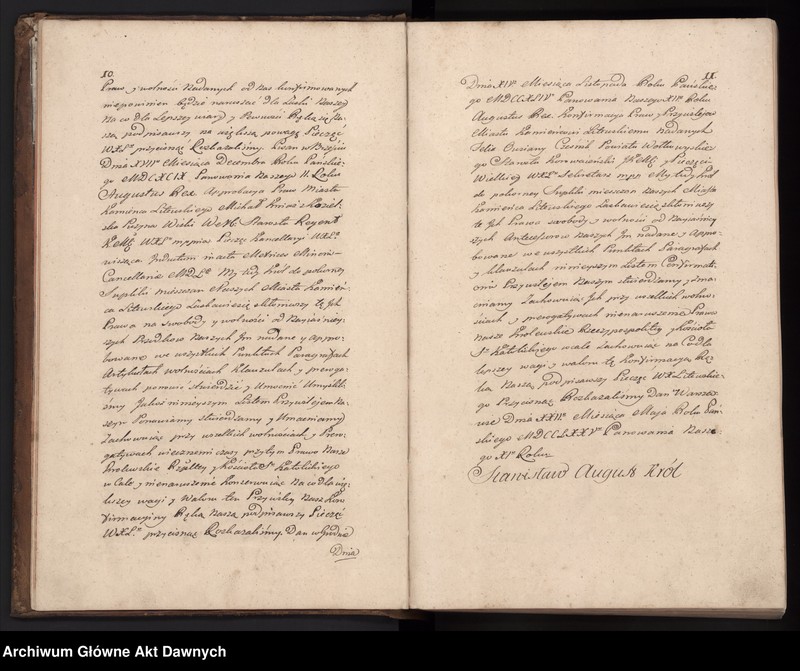 10.
Praw y wolności Nadanych od Nas konfirmowanych
niepowinien będzie naruszać dla Łaski Naszey
Na co dla Lepszey wiary y Powagi Ręką się Na-
szą podpisawszy na większą powagę Pieczęć
WXLo przycisnąć Rozkazaliśmy. Pisan w Brześciu
Dnia XVII Miesiąca Decembra Roku Pańskie-
go MDCXCIX Panowania Naszego II. Roku
Augustus Rex Approbacya Praw Miastu
Kamieńca Litewskiego Michał Kniaź
Pisarz Wielki Starosta Regent
Pieczęć Kancellaryi WXLo
wisząca Inductum in acta Metrices Minoris
Cancellariæ MDLo My tedy Król do pokorney
Suppliki mieszczan Naszych Miasta Kamień-
ca Litewskiego Łaskawie się skłoniwszy te Ich
Prawa na Swobody y wolności od Nayiaśniey-
szych Przodków Naszych Im nadane y appro-
bowane we wszystkich Punktach Paragrafach
Artykułach wolnościach klauzulach y preroga-
tywach ponowić stwierdzić y Umocnić Umyśli-
liśmy Jakoż ninieyszym Listem Przywilejem Na-
szym Ponawiamy stwierdzamy y Umacniamy
Zachowując przy wszelkich wolnościach y Prero-
gatywach wiecznemi czasy przytym Prawo Nasze
Królewskie Rzpltey y Kościoła So Katolickiego
w Cale y nienaruszenie Konserwując Na co dla wię-
kszey wagi y Waloru ten Przywiley Nasz Kon-
firmacyiny Ręką Naszą podpisawszy Pieczęć
WXLo przycisnąć Rozkazaliśmy. Dan w Grodnie
Dnia
11.
Dnia XIVo Miesiąca Listopada Roku Pańskie-
go MDCCXLIVo Panowania Naszego XIIo Roku
Augustus Rex. Konfirmacya Praw y Przywilejow
Miastu Kamieńcowi Litewskiemu Nadanych
Felix Powiatu Wołkowyskie-
go Starosta JKMCi y Pieczęci
Wielkiey WXLo Sekretarz mpp. My tedy Król
do pokorney Suppliki mieszczan Naszych Miasta
Kamieńca Litewskiego Łaskawie się skłoniwszy
te Ich Prawa swobody y wolności od Nayiaśniey-
szych Antecessorow Naszych Im nadane y Appro-
bowane we wszystkich Punktach Paragrafach
y klauzulach ninieyszym Listem Confirmati-
onis Przywilejem Naszym stwierdzamy y zmac-
niamy Zachowując Ich przy wszelkich wolno-
ściach y prerogatywach nienaruszenie Prawo
Nasze Królewskie Rzeczypospolitey y Kościoła
So Katolickiego wcale Zachowując na Co dla
Lepszey wagi y waloru tę Konfirmacyą Rę-
ką Naszą podpisawszy Pieczęć WXLitewskie-
go Przycisnąć Rozkazaliśmy Dan w Warsza-
wie Dnia XXIIo Miesiąca Maja Roku Pań-
skiego MDCCLXXVo Panowania Nasze-
go XIo Roku.
Stanisław August Król
Archiwum Główne Akt Dawnych